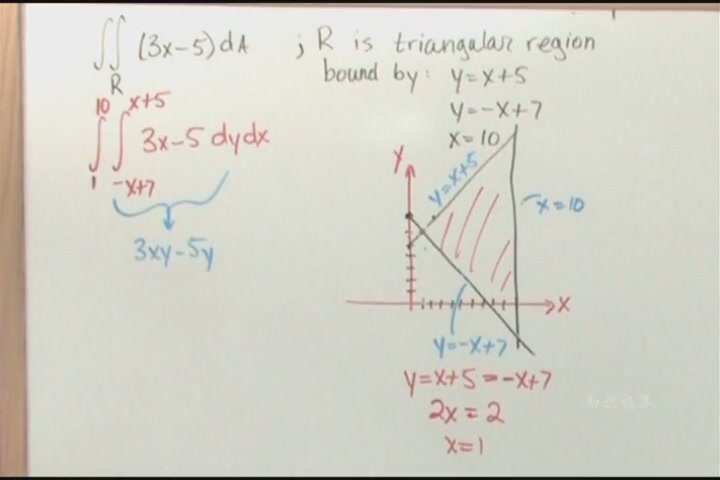 ∬ (3x-5)dA ; R is triangular region
R
bound by: y=x+5
y=-x+7
x=10
10 x+5
∫∫ 3x-5 dydx
1 -x+7
3xy-5y
y
y=x+5
x=10
x
y=-x+7
y=x+5=-x+7
2x=2
x=1
知识视界